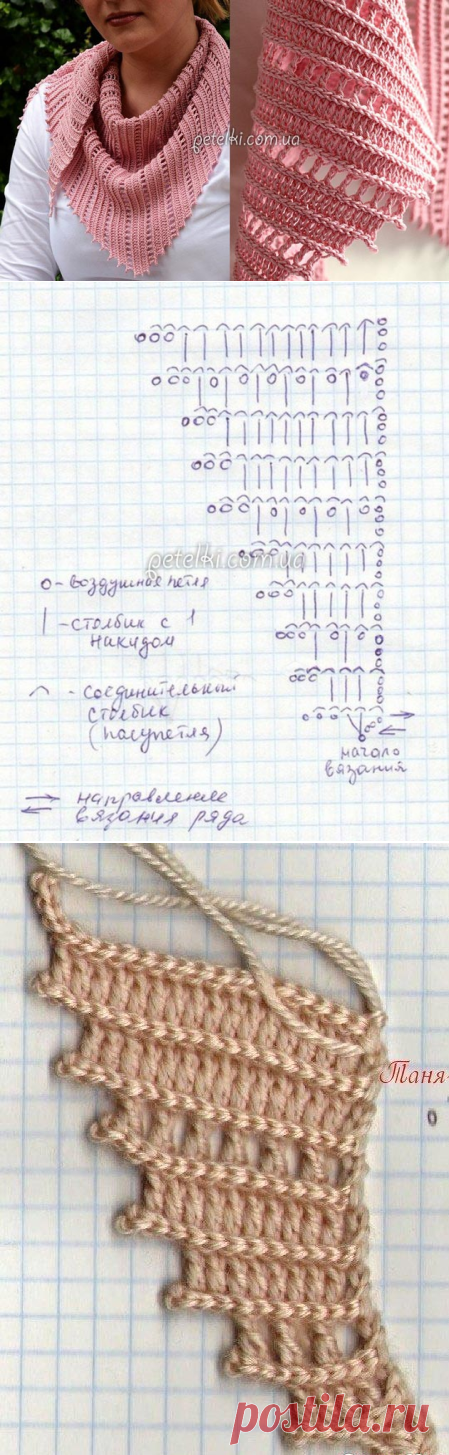 petelki.com.ua
petelki.com.ua
о - воздушная петля
| - столбик с 1
накидом
⌒ - соединительный
столбик
(полупетля)
начало
вязания
направление
вязания ряда
Таня-
postila.ru